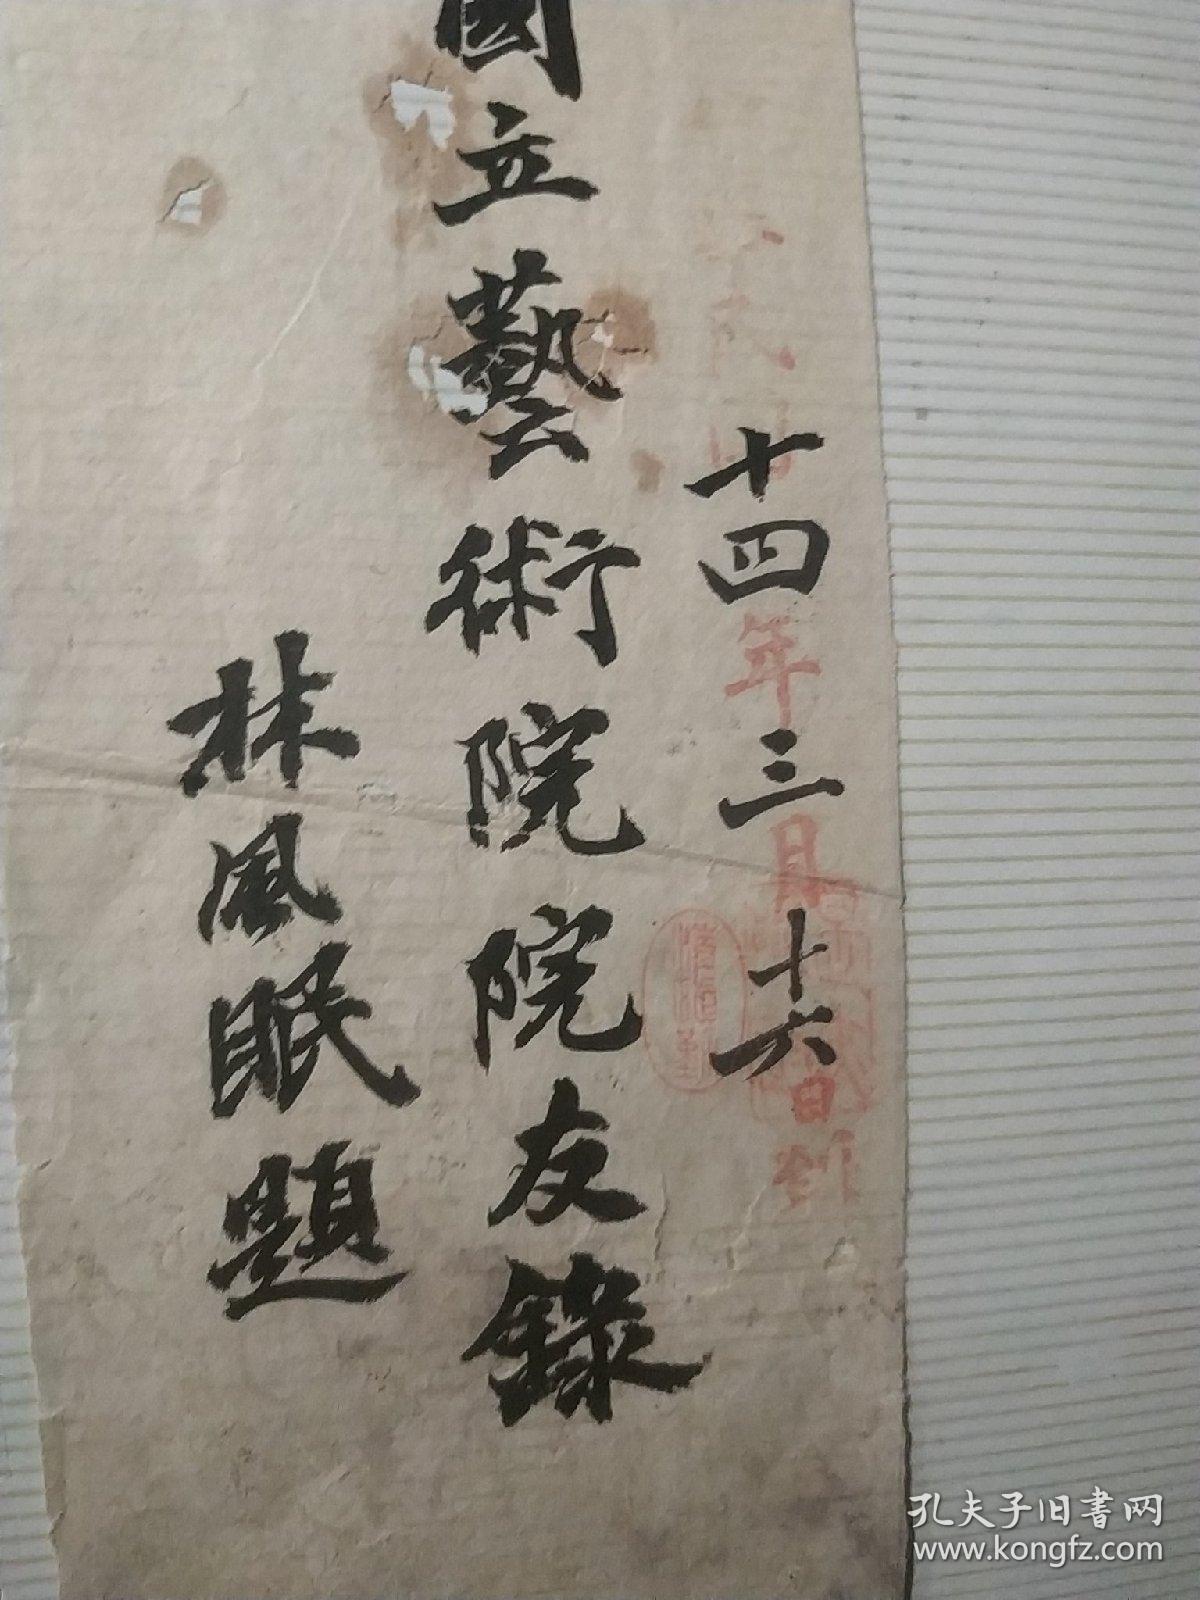 十四年三月十六日到
國立藝術院院友錄
林風眠題
孔夫子旧书网
www.kongfz.com